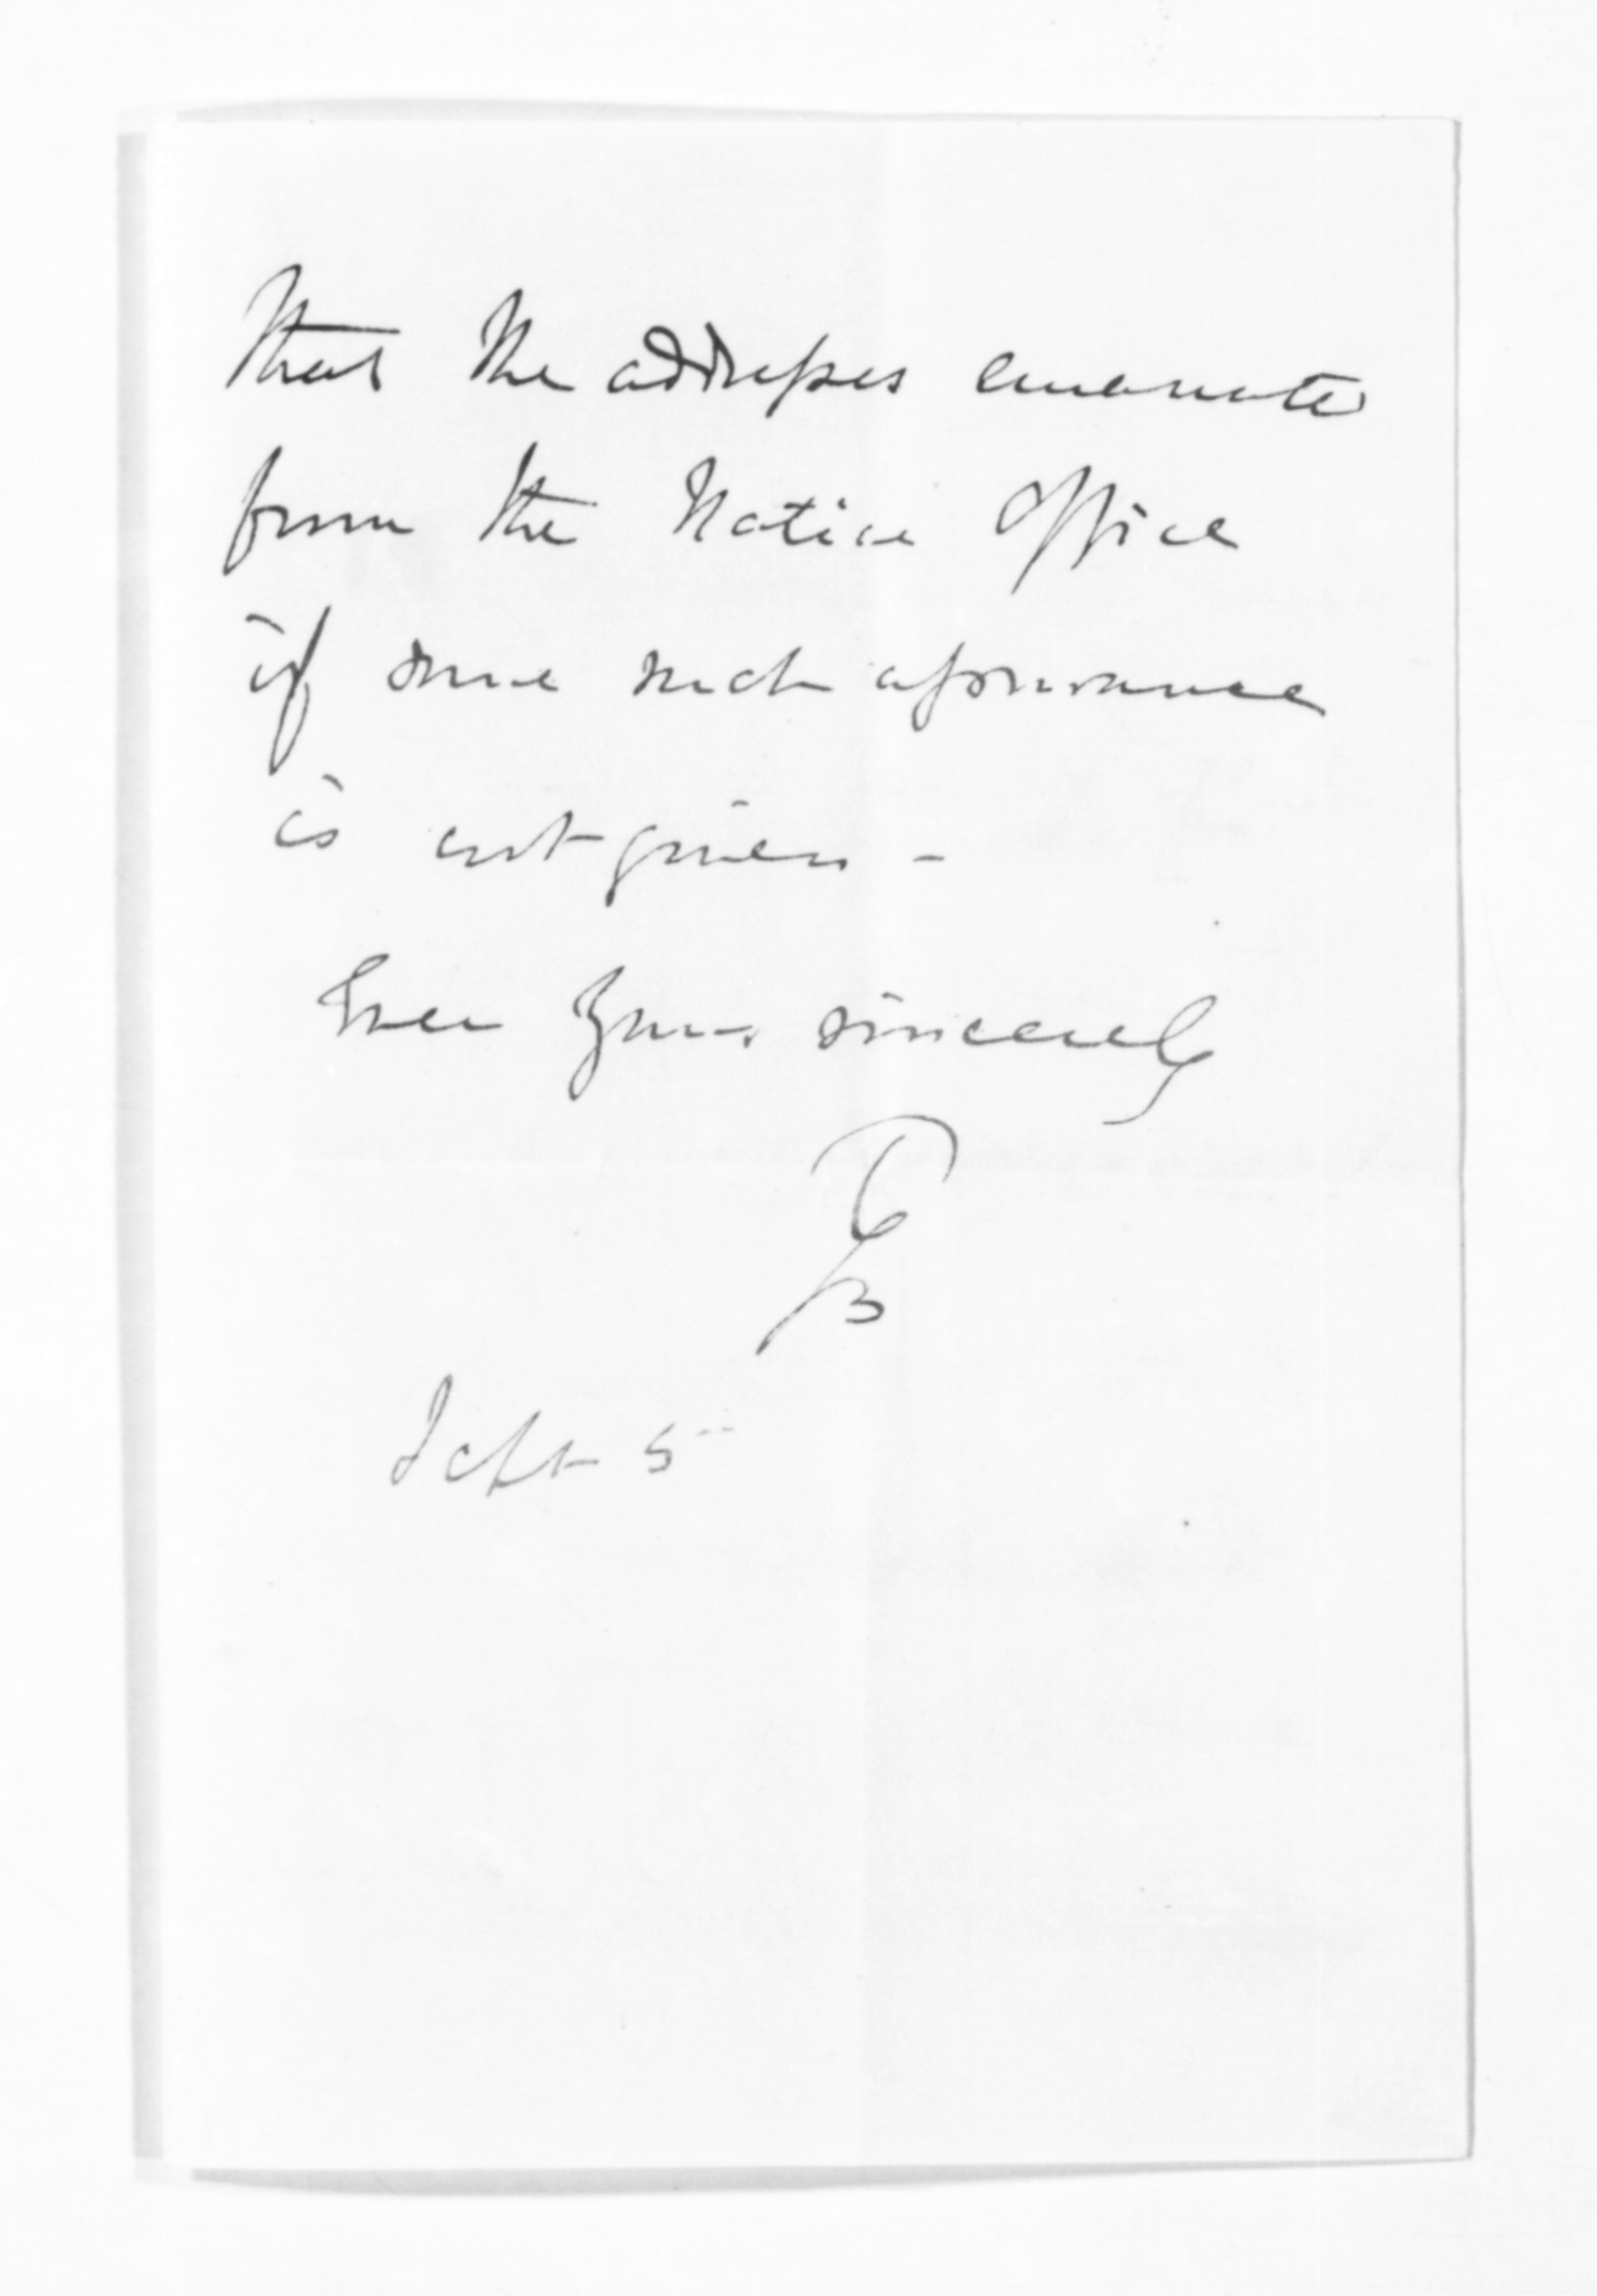 that the addresses emanate
from the Native Office
if some such assurance
is not given -
Ever yours sincerely
Sept 5